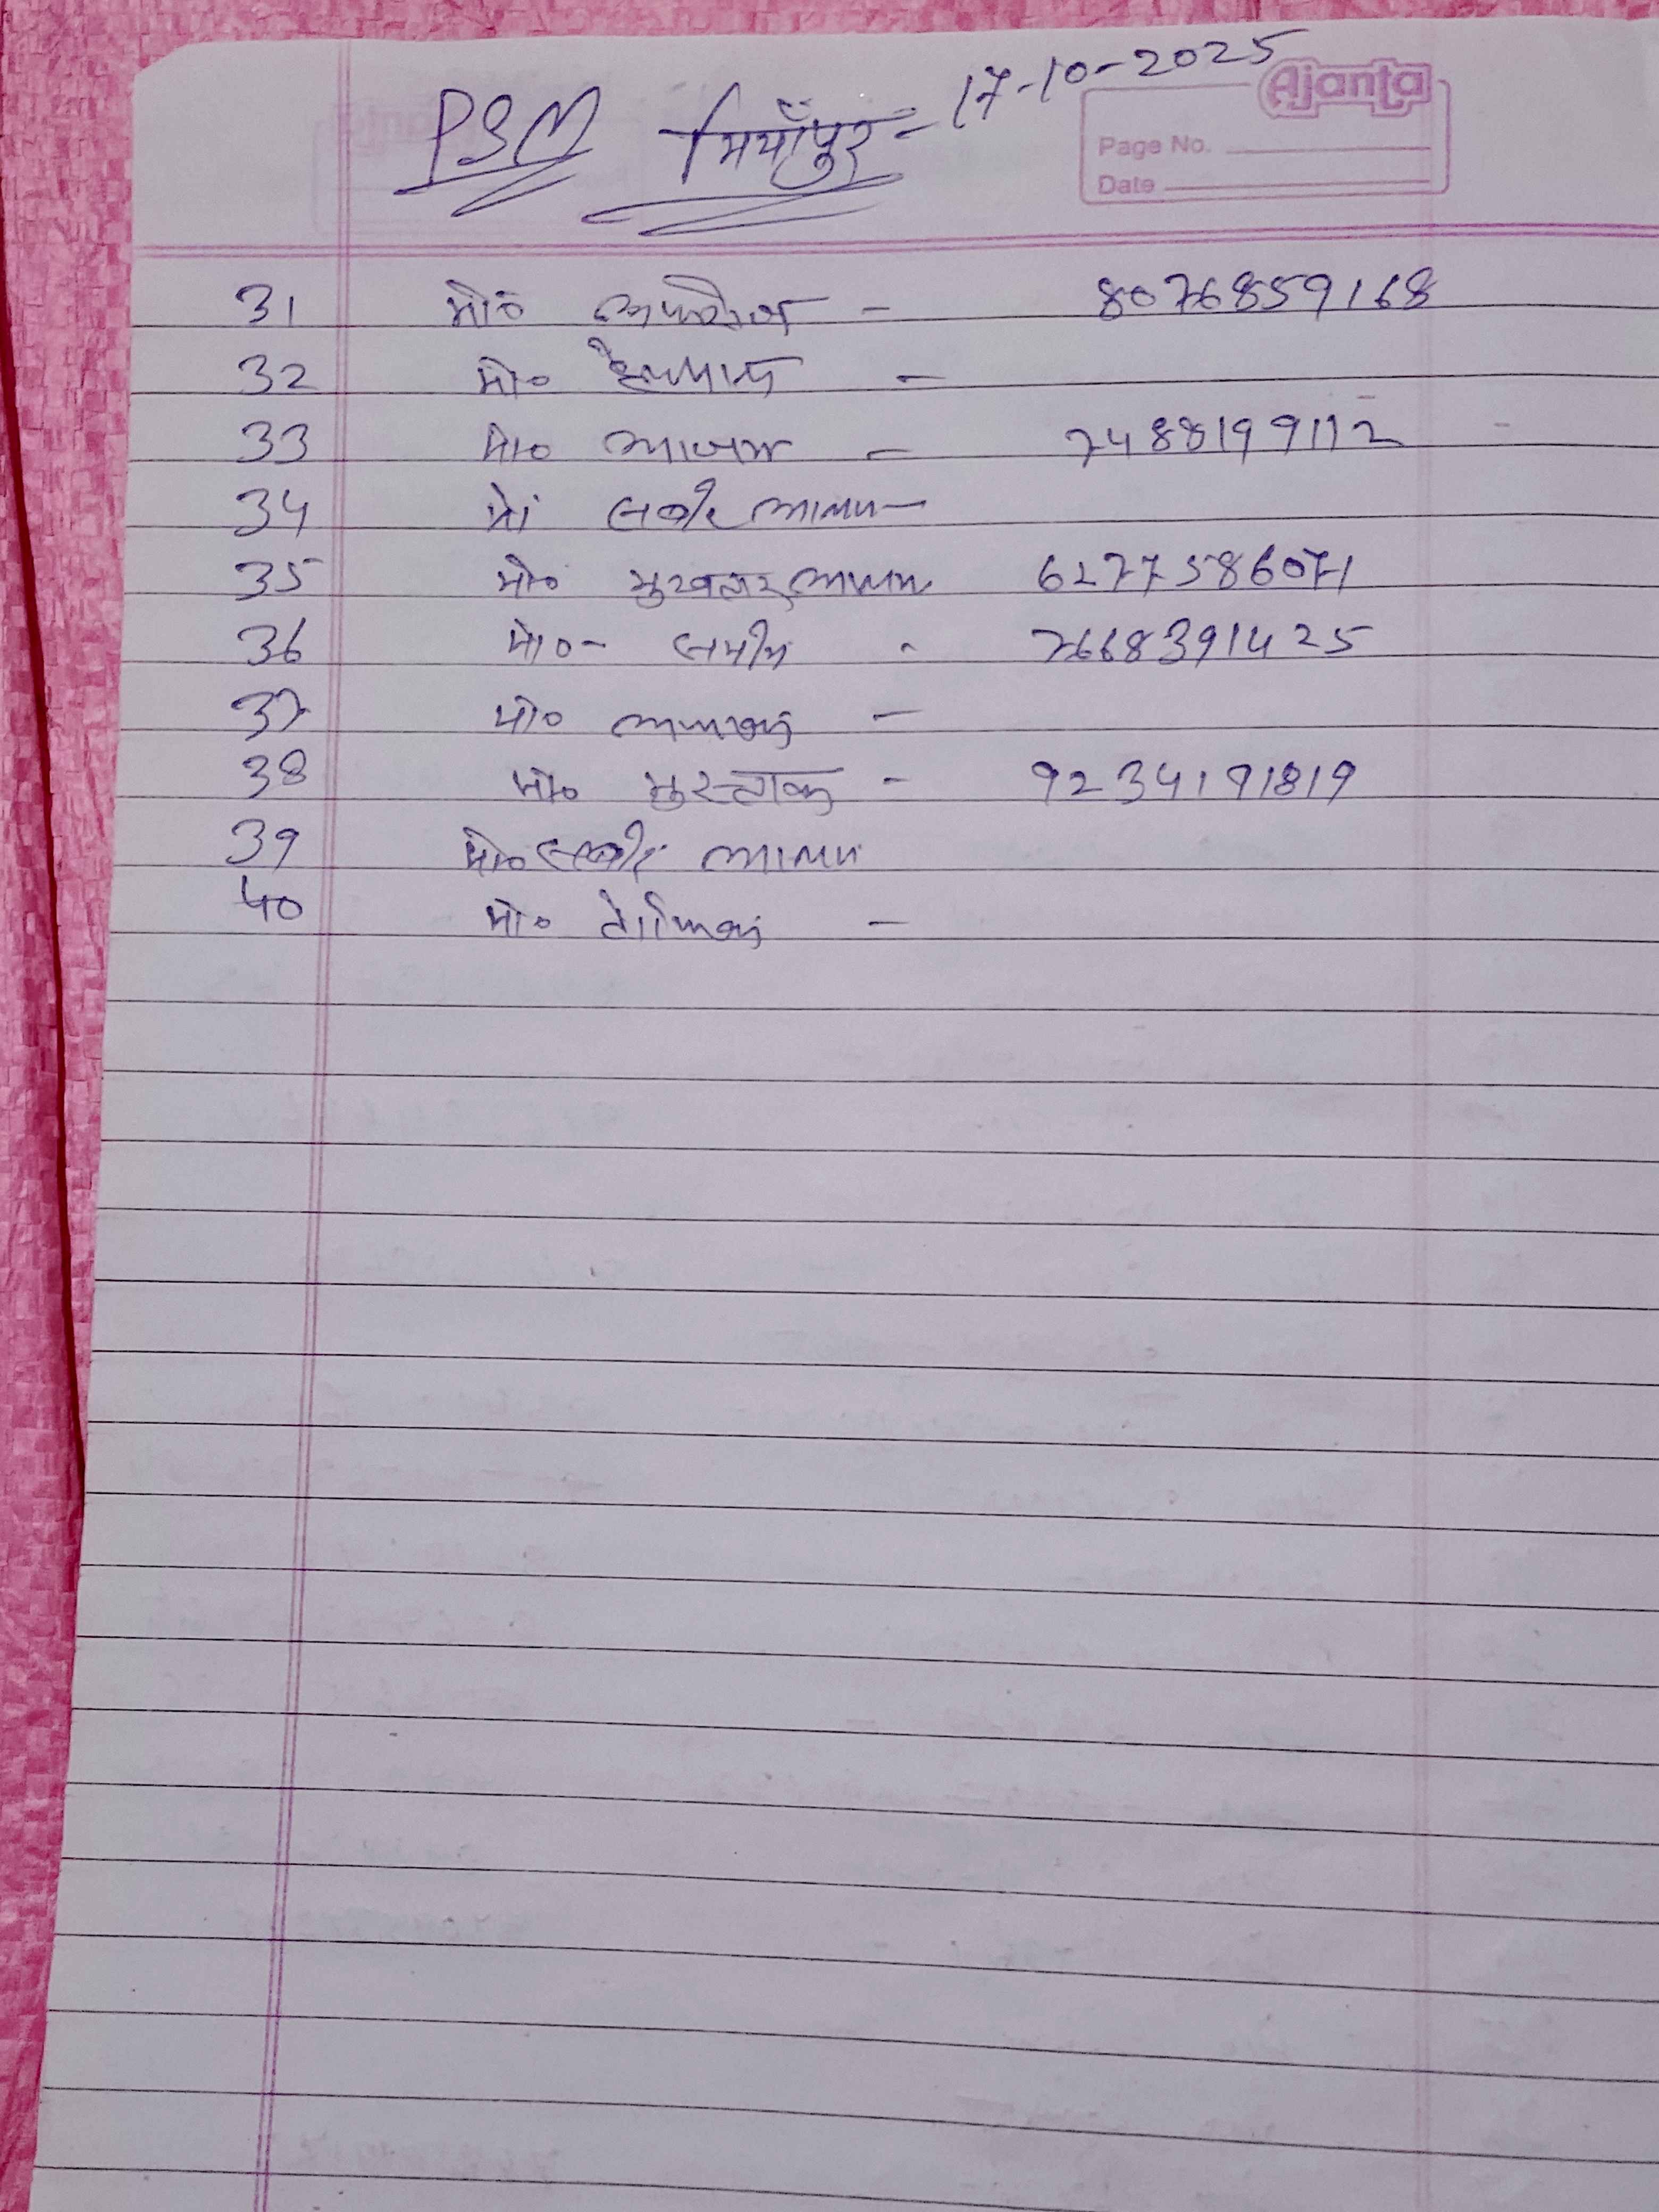 PSM मियाँपुर = 17-10-2025
Ajanta
Page No.
Date
31 मो० अफरोज - 8076859168
32 मो० -
33 मो० - 7488199112
34 मो० आलम -
35 मो० मुखतार आलम 6277586071
36 मो० - समीम - 7668391425
37 मो० -
38 मो० मुस्ताक - 9234191819
39 मो० आलम
40 मो० -